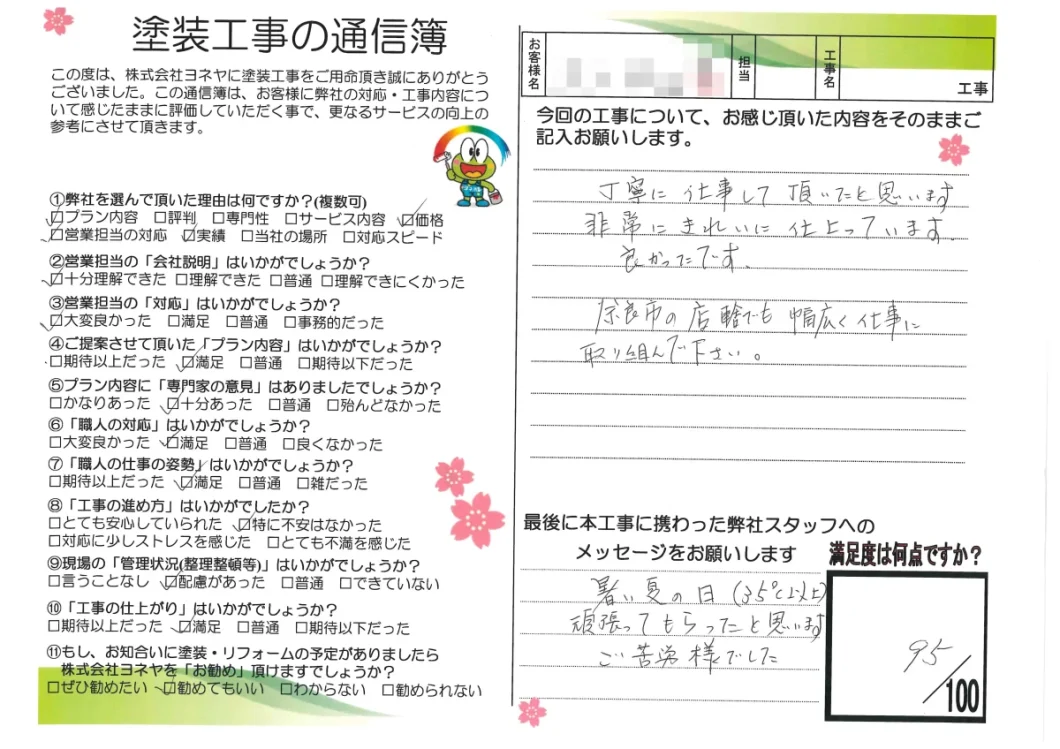 塗装工事の通信簿
この度は、株式会社ヨネヤに塗装工事をご用命頂き誠にありがとう
ございました。この通信簿は、お客様に弊社の対応・工事内容につ
いて感じたままに評価していただく事で、更なるサービスの向上の
参考にさせて頂きます。
①弊社を選んで頂いた理由は何ですか？(複数可)
☑プラン内容 □評判 □専門性 □サービス内容 ☑価格
☑営業担当の対応 ☑実績 □当社の場所 □対応スピード
②営業担当の「会社説明」はいかがでしょうか？
☑十分理解できた □理解できた □普通 □理解できにくかった
③営業担当の「対応」はいかがでしょうか？
☑大変良かった □満足 □普通 □事務的だった
④ご提案させて頂いた「プラン内容」はいかがでしょうか？
□期待以上だった ☑満足 □普通 □期待以下だった
⑤プラン内容に「専門家の意見」はありましたでしょうか？
□かなりあった ☑十分あった □普通 □殆んどなかった
⑥「職人の対応」はいかがでしょうか？
□大変良かった ☑満足 □普通 □良くなかった
⑦「職人の仕事の姿勢」はいかがでしょうか？
□期待以上だった ☑満足 □普通 □雑だった
⑧「工事の進め方」はいかがでしたか？
□とても安心していられた ☑特に不安はなかった
□対応に少しストレスを感じた □とても不満を感じた
⑨現場の「管理状況(整理整頓等)」はいかがでしょうか？
□言うことなし ☑配慮があった □普通 □できていない
⑩「工事の仕上がり」はいかがでしょうか？
□期待以上だった ☑満足 □普通 □期待以下だった
⑪もし、お知合いに塗装・リフォームの予定がありましたら
株式会社ヨネヤを「お勧め」頂けますでしょうか？
□ぜひ勧めたい ☑勧めてもいい □わからない □勧められない
お客様名 担当 工事名 工事
今回の工事について、お感じ頂いた内容をそのままご
記入お願いします。
丁寧に仕事して頂いたと思います
非常にきれいに仕上っています。
良かったです。
奈良市の店舗でも幅広く仕事に
取り組んで下さい。
最後に本工事に携わった弊社スタッフへの
メッセージをお願いします
暑い夏の日(35℃以上)
頑張ってもらったと思います
ご苦労様でした
満足度は何点ですか？
95/100